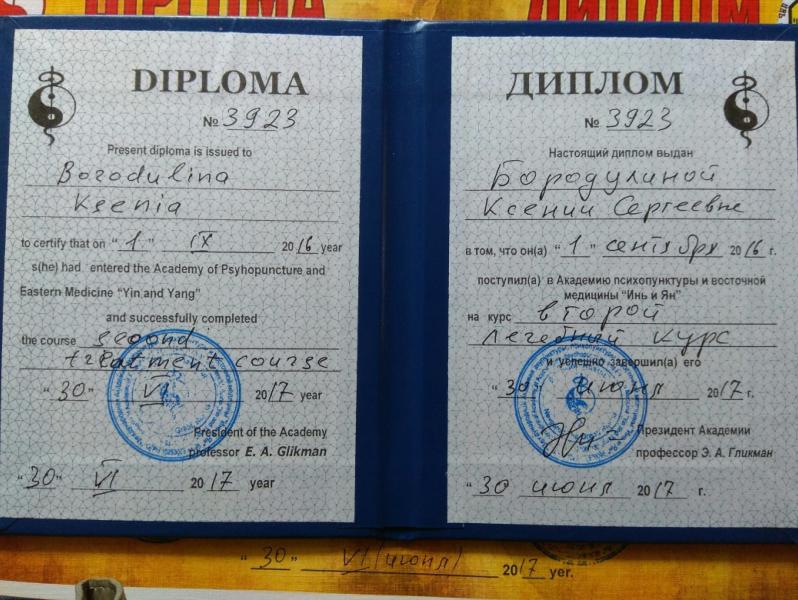 DIPLOMA
ДИПЛОМ
DIPLOMA
№ 3923
Present diploma is issued to
Borodulina
Ksenia
to certify that on "1" IX 2016 year
s(he) had entered the Academy of Psyhopuncture and
Eastern Medicine "Yin and Yang"
and successfully completed
the course second
treatment course
"30" VI 2017 year
President of the Academy
professor E. A. Glikman
"30" VI 2017 year
ДИПЛОМ
№ 3923
Настоящий диплом выдан
Бородулиной
Ксении Сергеевне
в том, что он(а) "1" сентября 2016 г.
поступил(а) в Академию психопунктуры и восточной
медицины "Инь и Ян"
на курс второй
лечебный курс
и успешно завершил(а) его
"30" июня 2017 г.
Президент Академии
профессор Э. А. Гликман
"30 июня 2017 г.
"30" VI (июня) 2017 yer.